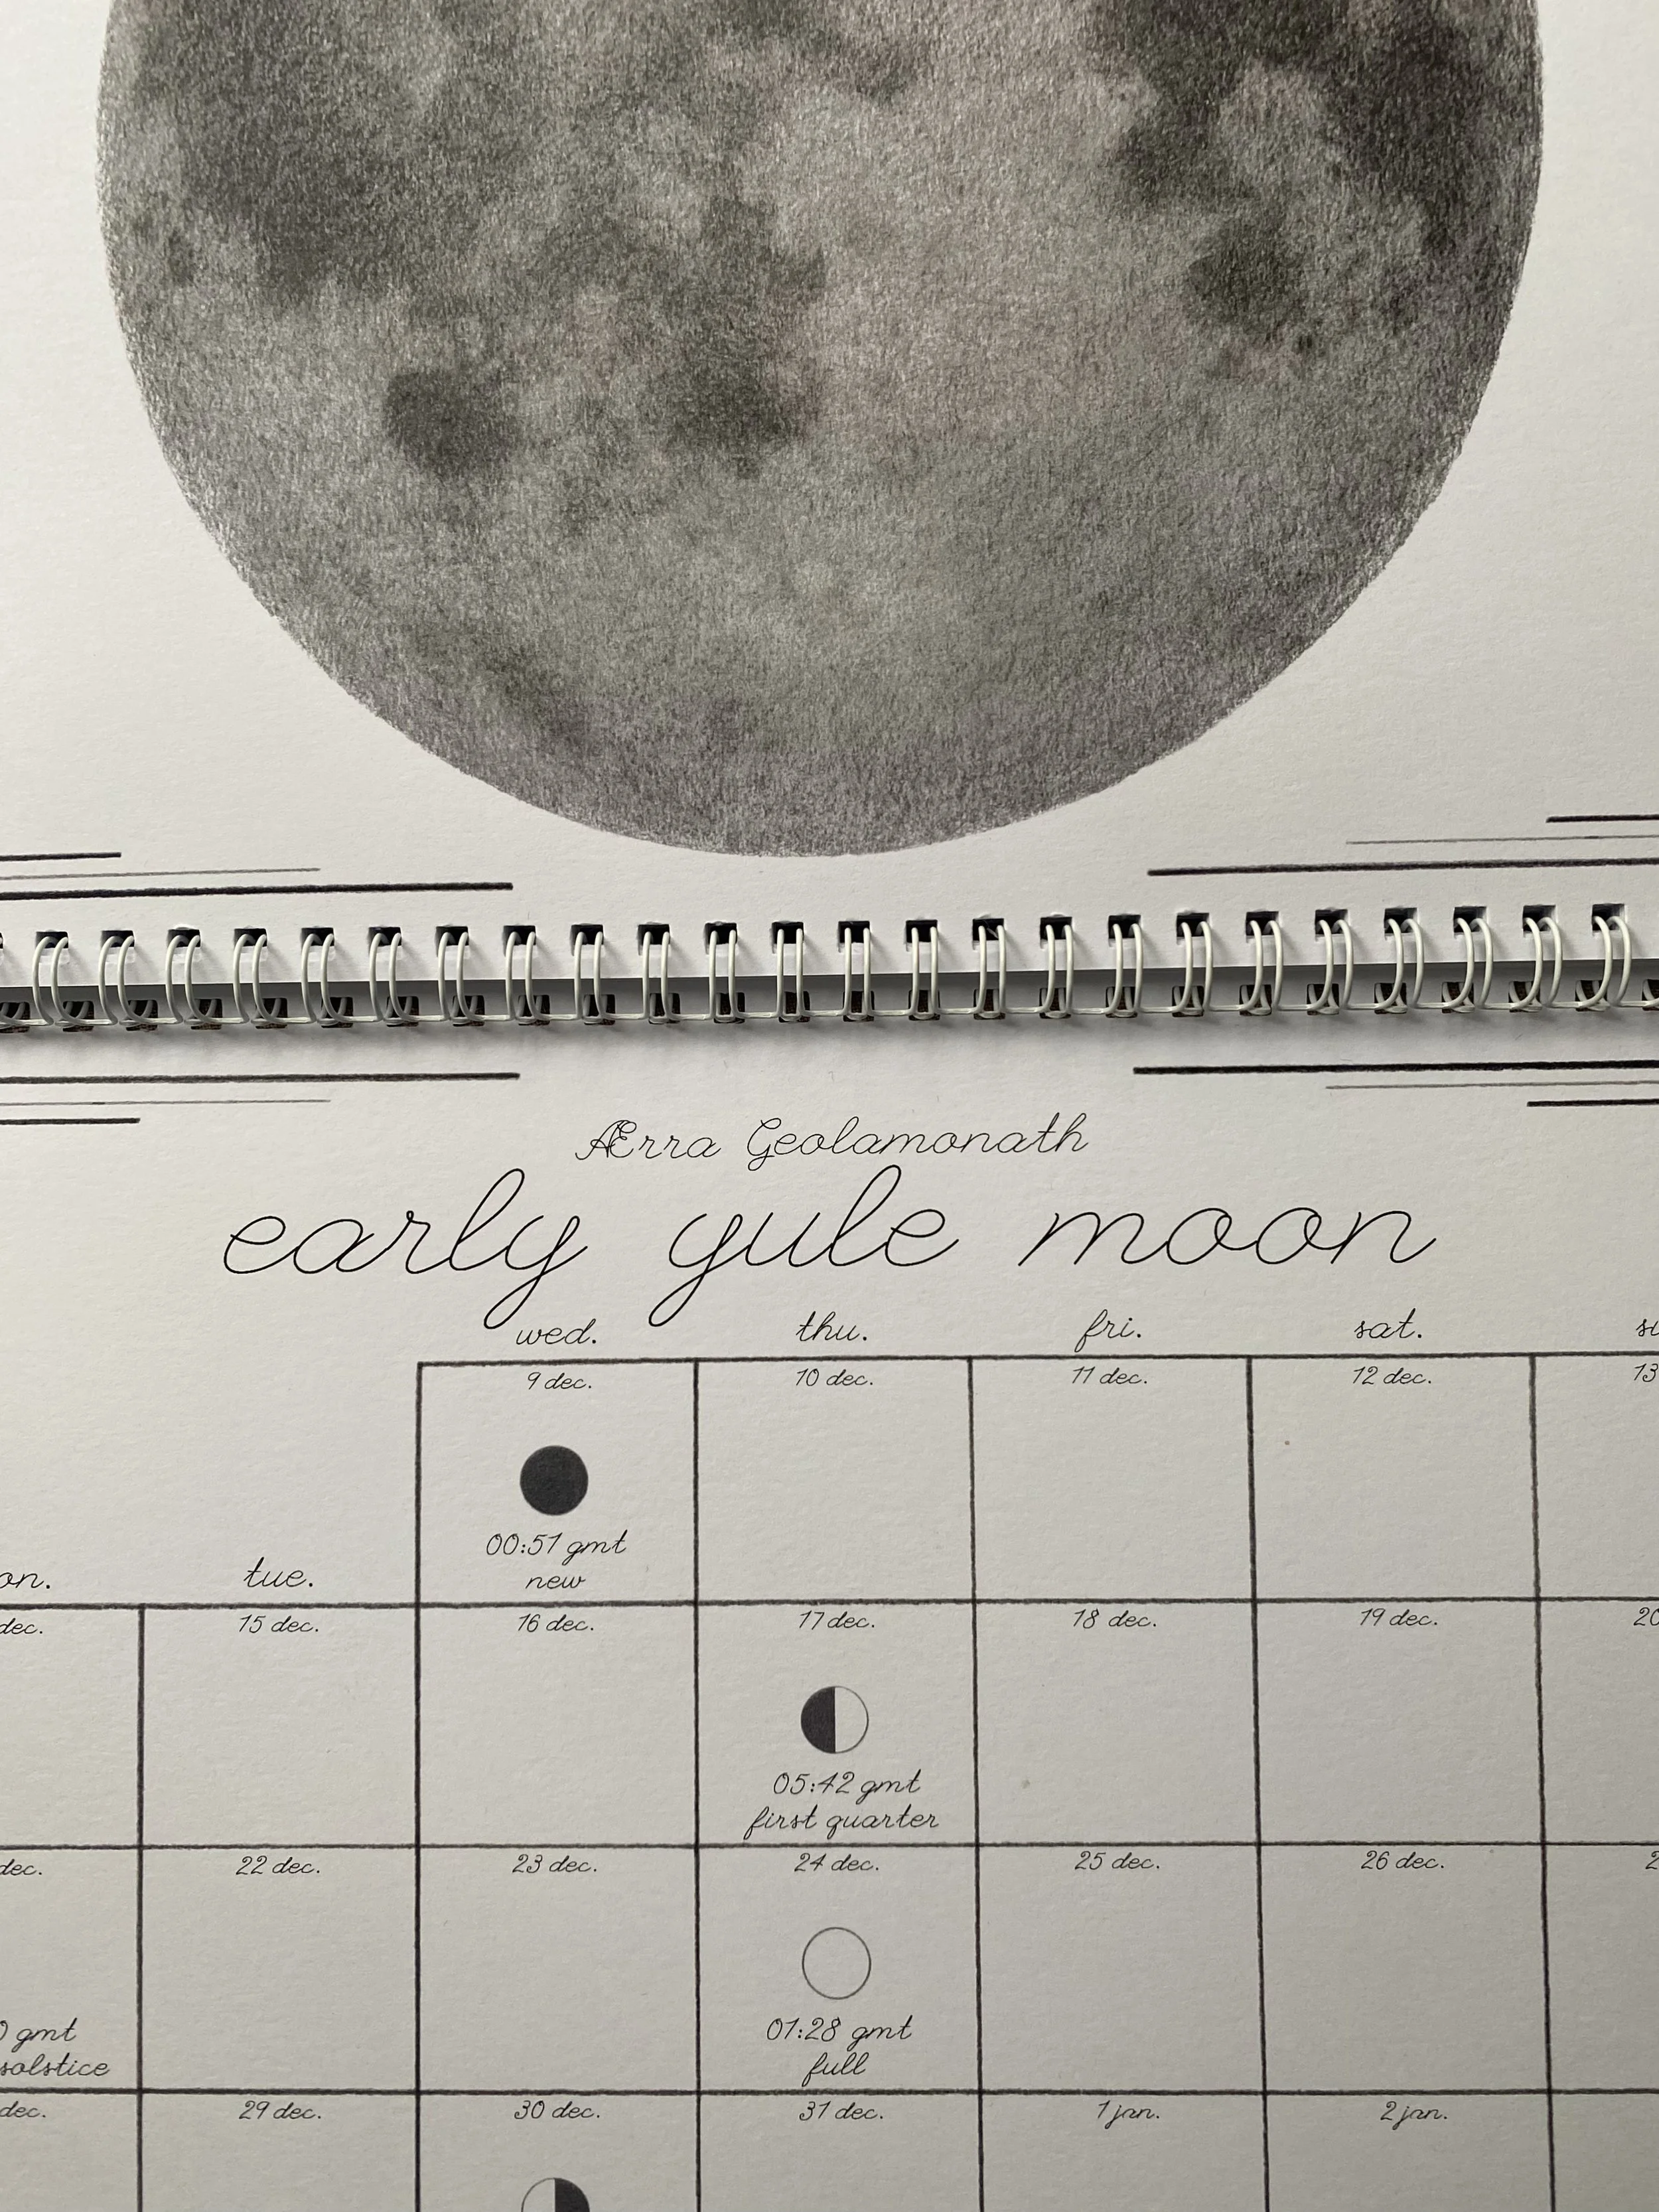 Ærra Geolamonath
early yule moon
wed. thu. fri. sat.
9 dec. 10 dec. 11 dec. 12 dec. 13
00:51 gmt
new
on. tue.
dec. 15 dec. 16 dec. 17 dec. 18 dec. 19 dec. 20
05:42 gmt
first quarter
dec. 22 dec. 23 dec. 24 dec. 25 dec. 26 dec. 2
0 gmt 01:28 gmt
solstice full
dec. 29 dec. 30 dec. 31 dec. 1 jan. 2 jan.